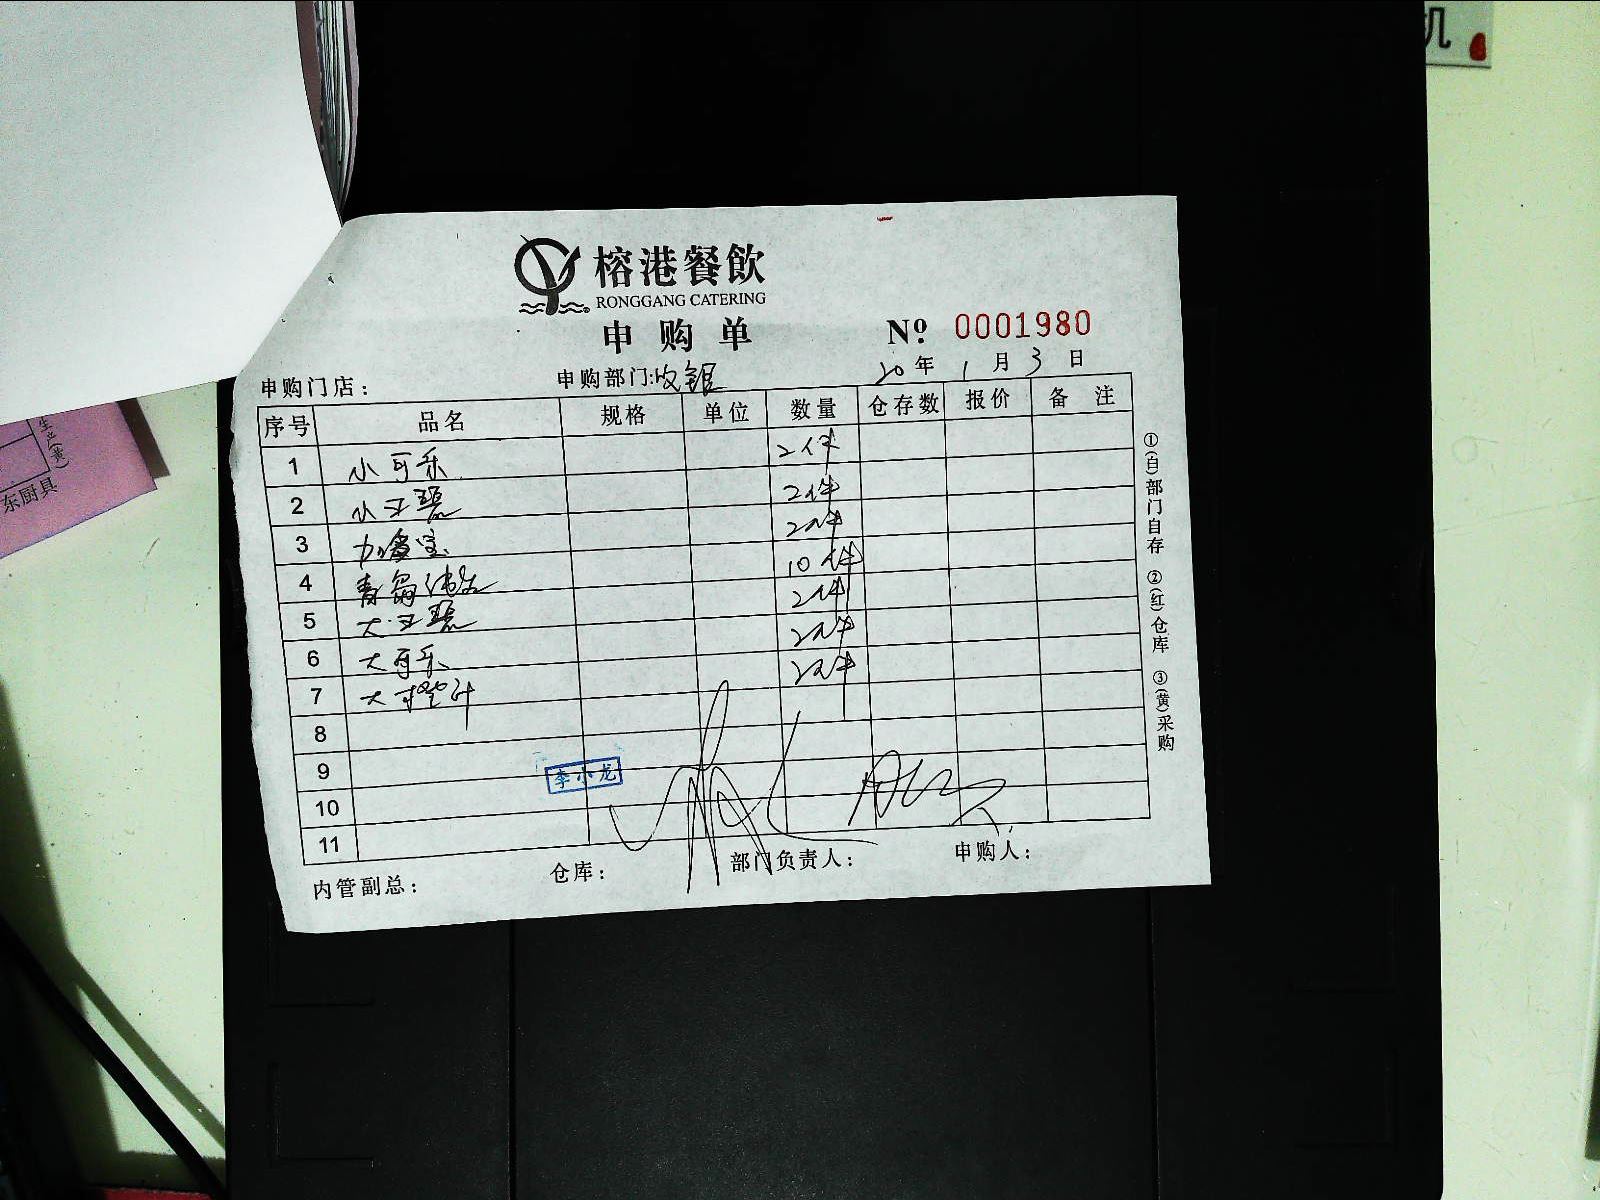 机
榕港餐飲
RONGGANG CATERING
申购单 Nº 0001980
申购门店： 申购部门:收银 20年1月3日
序号 品名 规格 单位 数量 仓存数 报价 备注
1 小可乐 2件
2 小王老 2件
3 加多宝 2件
4 青岛 10件
5 大王老 2件
6 大可乐 2件
7 大橙汁 2件
8
9
10
11
李小龙
内管副总： 仓库： 部门负责人： 申购人：
①(白)部门自存 ②(红)仓库 ③(黄)采购
生产(黄)
东厨具